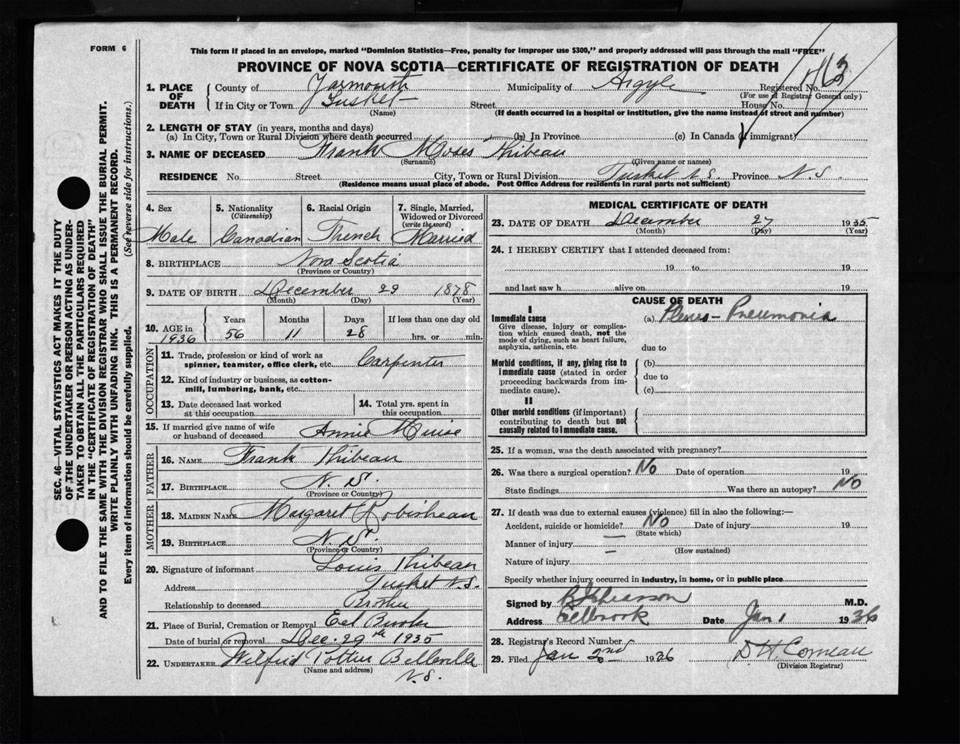 FORM 6
This form if placed in an envelope, marked "Dominion Statistics—Free, penalty for improper use $300," and properly addressed will pass through the mail "FREE"
PROVINCE OF NOVA SCOTIA—CERTIFICATE OF REGISTRATION OF DEATH
SEC. 46—VITAL STATISTICS ACT MAKES IT THE DUTY
OF THE UNDERTAKER OR PERSON ACTING AS UNDER-
TAKER TO OBTAIN ALL THE PARTICULARS REQUIRED
IN THE "CERTIFICATE OF REGISTRATION OF DEATH"
AND TO FILE THE SAME WITH THE DIVISION REGISTRAR WHO SHALL ISSUE THE BURIAL PERMIT.
WRITE PLAINLY WITH UNFADING INK. THIS IS A PERMANENT RECORD.
Every item of information should be carefully supplied. (See reverse side for instructions.)
1. PLACE OF DEATH County of Yarmouth Municipality of Argyle Registered No.
(For use of Registrar General only)
If in City or Town Tusket Street House No.
(Name) (If death occurred in a hospital or institution, give the name instead of street and number)
2. LENGTH OF STAY (in years, months and days)
(a) In City, Town or Rural Division where death occurred (b) In Province (c) In Canada (if immigrant)
3. NAME OF DECEASED Frank Moses Thibeau
(Surname) (Given name or names)
RESIDENCE No. Street City, Town or Rural Division Tusket N.S. Province N.S.
(Residence means usual place of abode. Post Office Address for residents in rural parts not sufficient)
4. Sex 5. Nationality (Citizenship) 6. Racial Origin 7. Single, Married, Widowed or Divorced (write the word)
Male Canadian French Married
8. BIRTHPLACE Nova Scotia
(Province or Country)
9. DATE OF BIRTH December 29 1878
(Month) (Day) (Year)
10. AGE in 1936 Years Months Days If less than one day old
56 11 28 hrs. or min.
OCCUPATION
11. Trade, profession or kind of work as spinner, teamster, office clerk, etc. Carpenter
12. Kind of industry or business, as cotton-mill, lumbering, bank, etc.
13. Date deceased last worked at this occupation 14. Total yrs. spent in this occupation
15. If married give name of wife or husband of deceased Annie Muise
FATHER
16. NAME Frank Thibeau
17. BIRTHPLACE N.S.
(Province or Country)
MOTHER
18. MAIDEN NAME Margaret Robisheau
19. BIRTHPLACE N.S.
(Province or Country)
20. Signature of informant Louis Thibeau
Address Tusket N.S.
Relationship to deceased Brother
21. Place of Burial, Cremation or Removal Eel Brook
Date of burial or removal Dec. 29th 1935
22. UNDERTAKER Wilfrid Pottier Belleville
(Name and address) N.S.
MEDICAL CERTIFICATE OF DEATH
23. DATE OF DEATH December 27 1935
(Month) (Day) (Year)
24. I HEREBY CERTIFY that I attended deceased from:
19 to 19
and last saw h alive on 19
CAUSE OF DEATH
I
Immediate cause (a) Pleuro-Pneumonia
Give disease, injury or complication which caused death, not the mode of dying, such as heart failure, asphyxia, asthenia, etc.
due to
Morbid conditions, if any, giving rise to immediate cause (stated in order proceeding backwards from immediate cause).
(b)
due to
(c)
II
Other morbid conditions (if important) contributing to death but not causally related to immediate cause.
25. If a woman, was the death associated with pregnancy?
26. Was there a surgical operation? No Date of operation 19
State findings Was there an autopsy? No
27. If death was due to external causes (violence) fill in also the following:—
Accident, suicide or homicide? No Date of injury 19
(State which)
Manner of injury —
(How sustained)
Nature of injury —
Specify whether injury occurred in industry, in home, or in public place
Signed by M.D.
Address Eelbrook Date Jan 1 1936
28. Registrar's Record Number
29. Filed Jan 2nd 1936 D. H. Comeau
(Division Registrar)